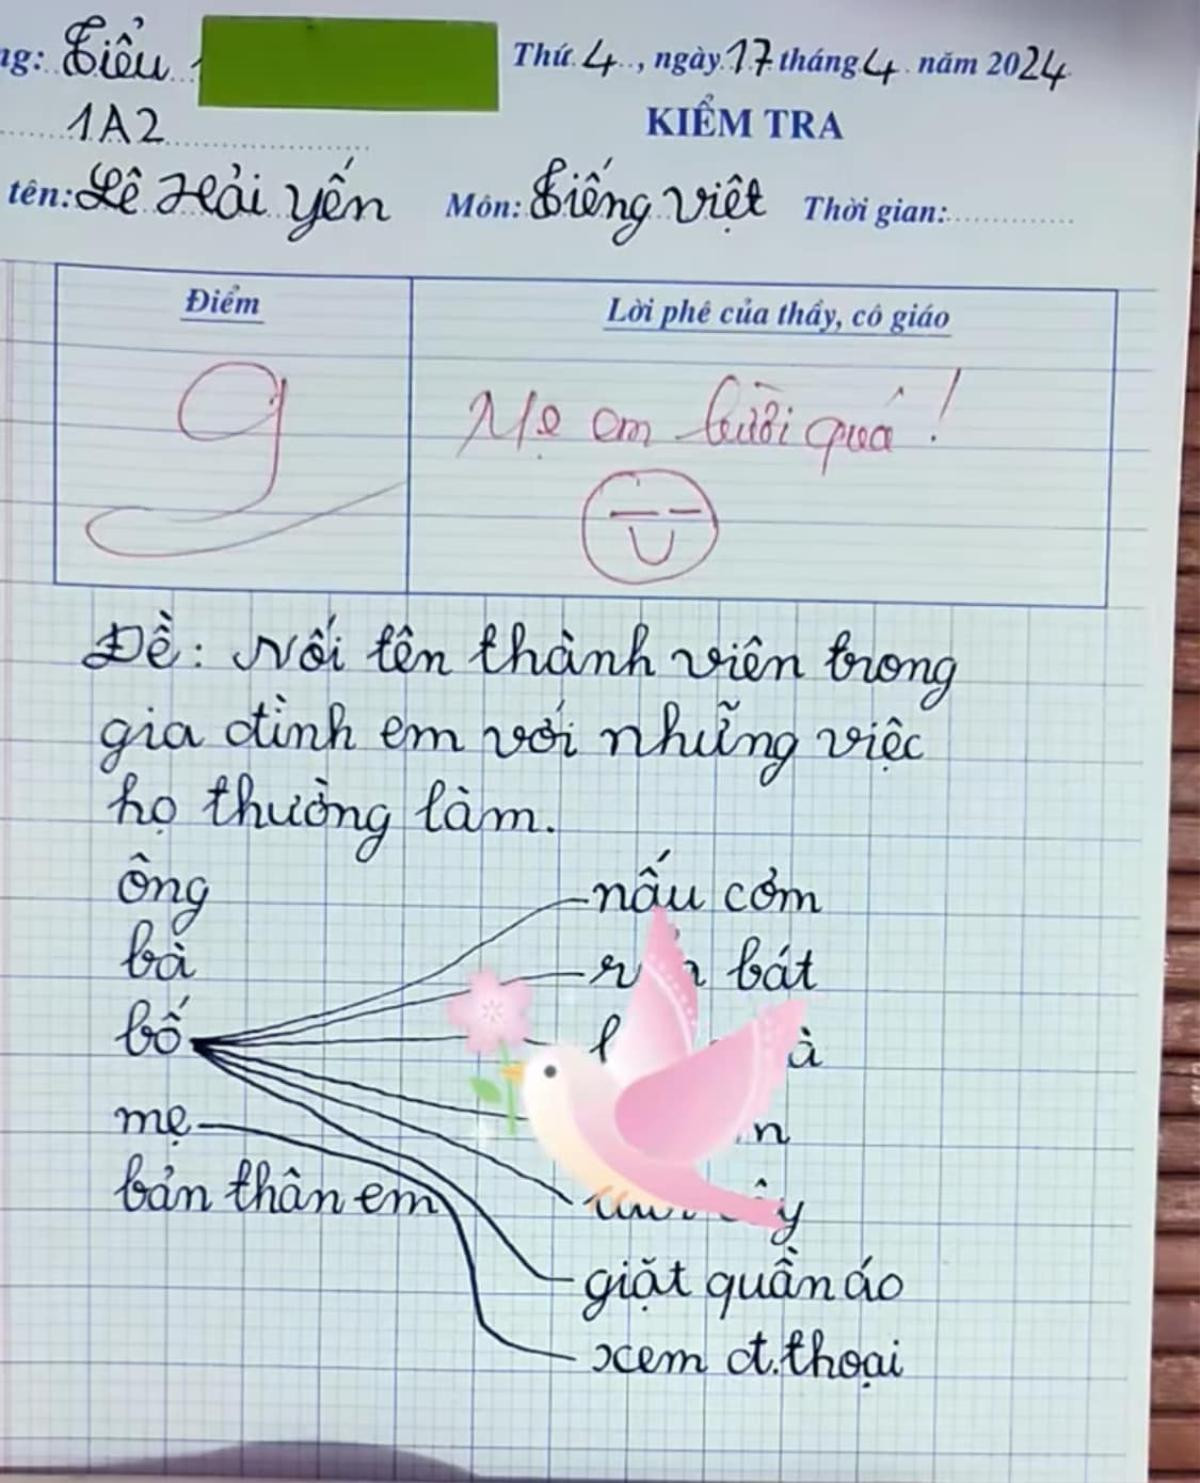 ng: Tiểu
Thứ 4, ngày 17 tháng 4 năm 2024
1A2
KIỂM TRA
tên: Lê Hải Yến
Môn: Tiếng Việt
Thời gian:
Điểm
Lời phê của thầy, cô giáo
9
Mẹ em lười quá!
Đề: Nối tên thành viên trong
gia đình em với những việc
họ thường làm.
ông
nấu cơm
bà
bát
bố
mẹ
bản thân em
giặt quần áo
xem đ.thoại